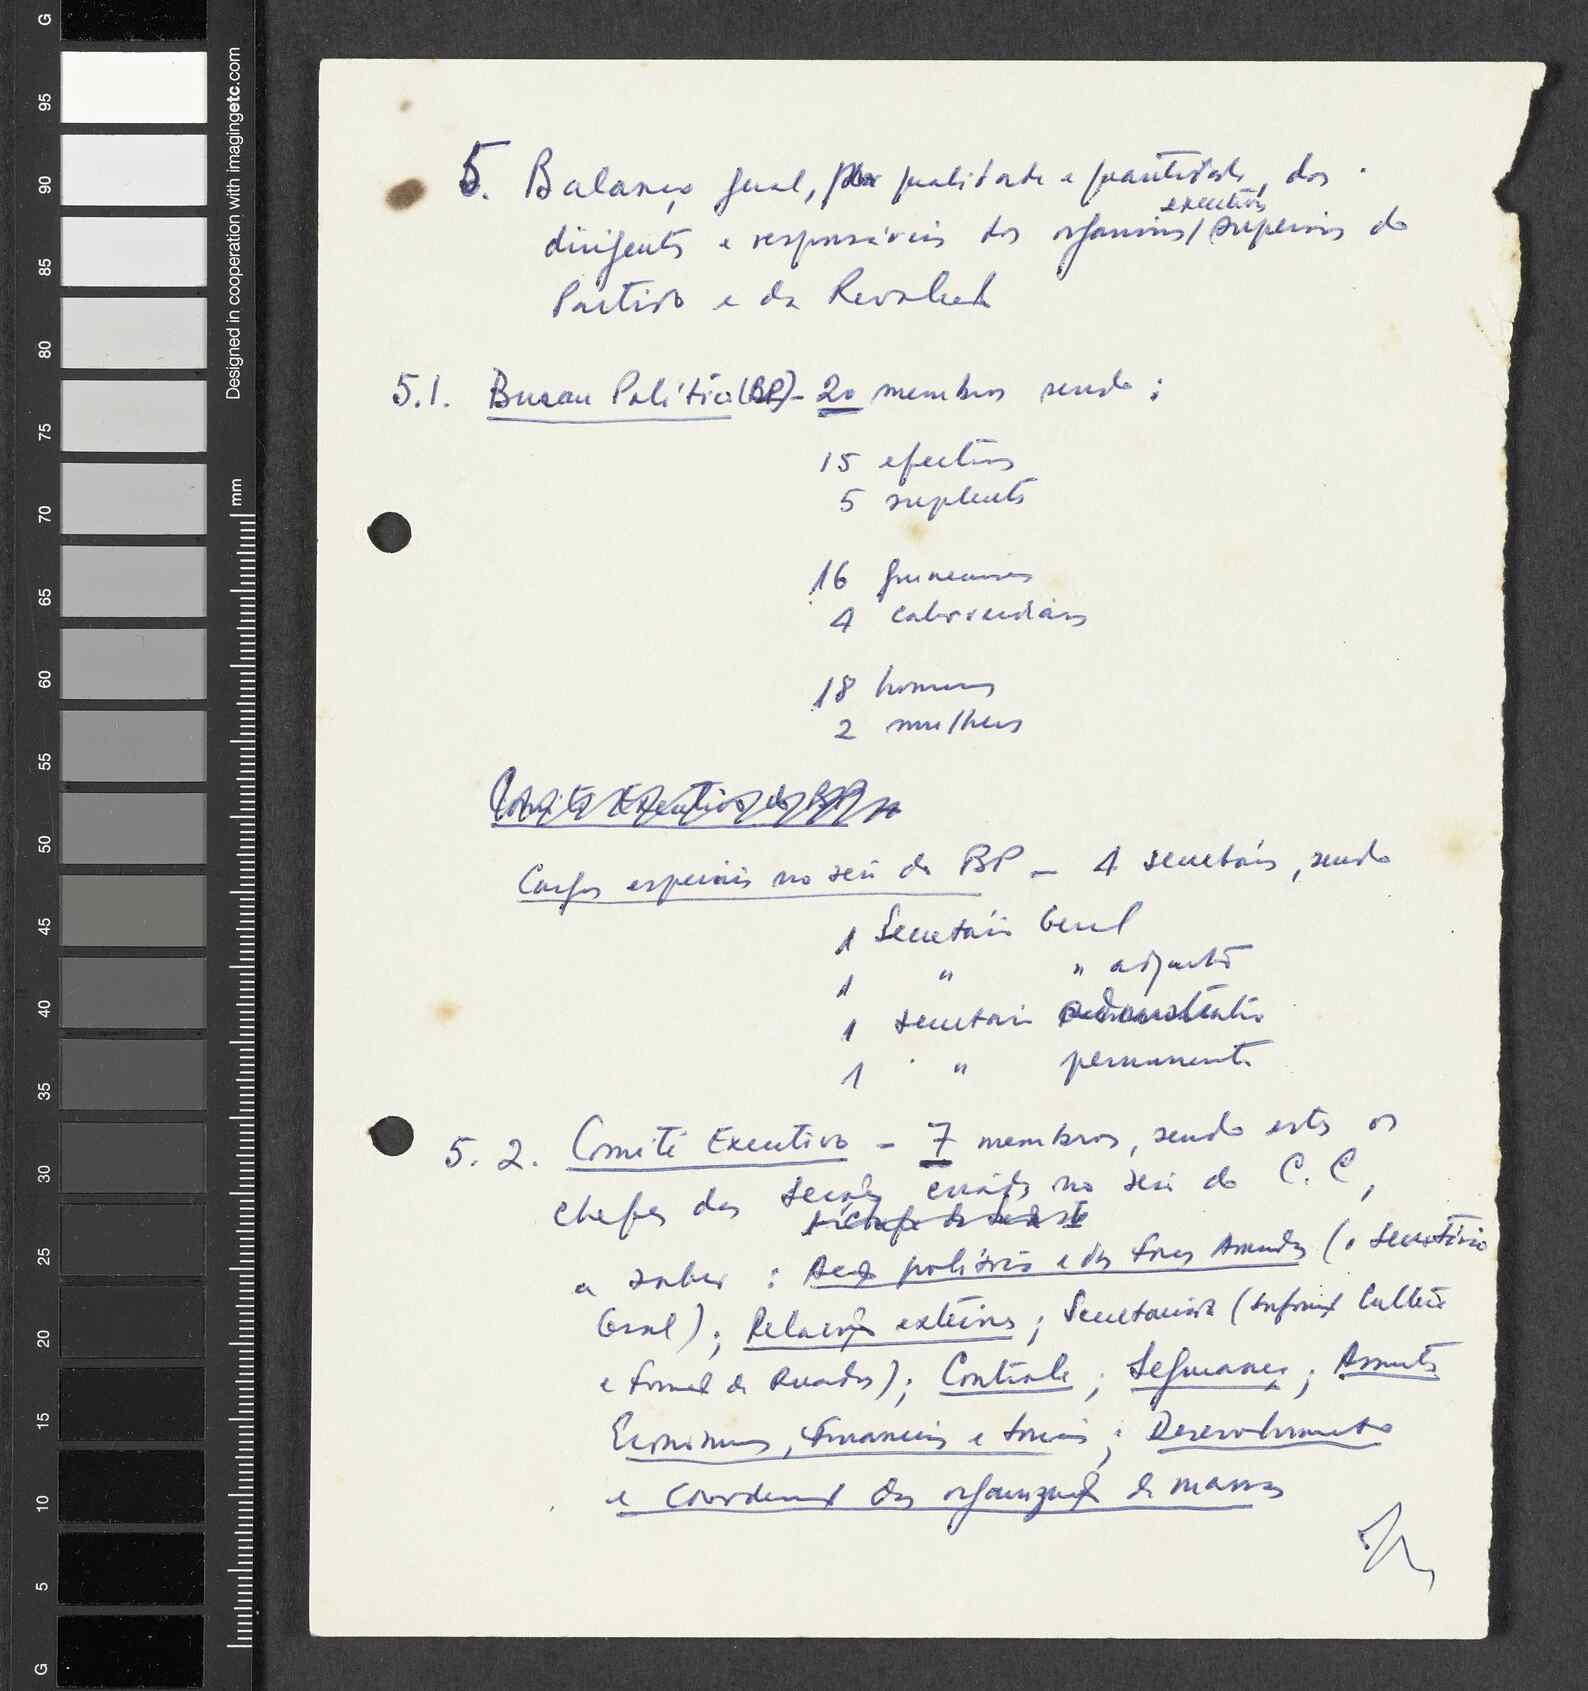 5. Balanço geral, por qualidade e quantidade, dos
executivos
dirigentes e responsáveis dos organismos / superiores do
Partido e da Revolução
5.1. Bureau Político (BP) - 20 membros sendo:
15 efectivos
5 suplentes
16 guineenses
4 caboverdianos
18 homens
2 mulheres
Comité Executivo do BP
Cargos especiais no seio do BP - 4 secretários, sendo
1 Secretário Geral
1 " " adjunto
1 secretário administrativo
1 " permanente
5.2. Comité Executivo - 7 membros, sendo estes os
chefes das secções criadas no seio do C.C,
a saber: Acção política e das Forças Armadas (o Secretário
Geral); Relações exteriores; Secretariado (Informação Cultura
e Formação de Quadros); Controle; Segurança; Assuntos
Económicos, Financeiros e Sociais; Desenvolvimento
e Coordenação das organizações de massas
G
95
90
85
80
75
70
65
60
55
50
45
40
35
30
25
20
15
10
5
G
Designed in cooperation with imagingetc.com
mm